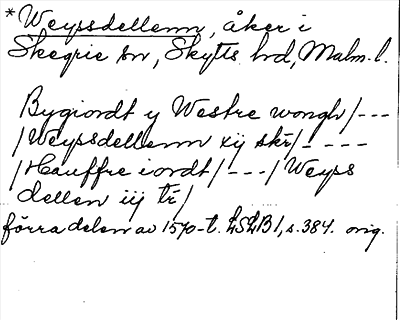 *Weypsdellenn, åker i
Skegrie sn, Skytts hd, Malm. l.
Bygiordt y Westre wongh/---
/Weypsdellenn xij skr/----
/Hauffre iordt/---/Weyps
dellen iij tr/
förra delen av 1570-t. LSLB1, s. 384. orig.